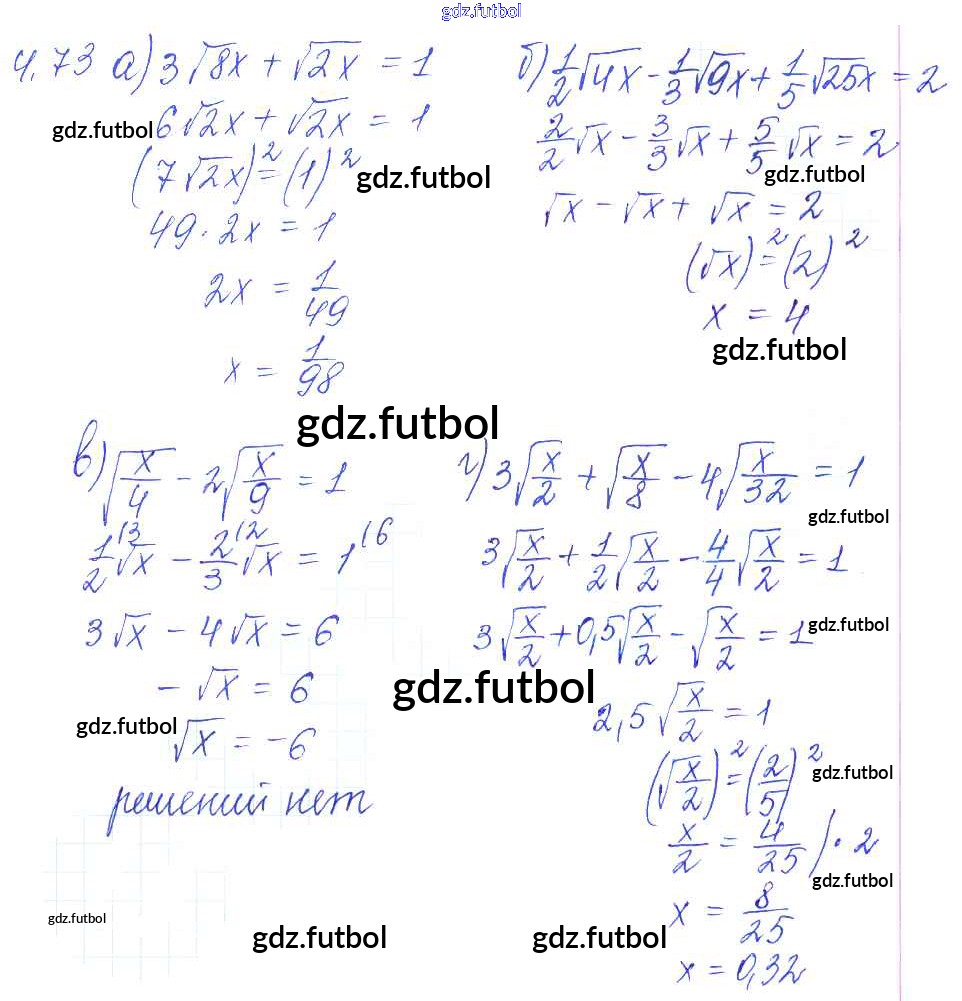 gdz.futbol
4.73 а) 3√8x + √2x = 1
gdz.futbol 6√2x + √2x = 1
(7√2x)² = (1)² gdz.futbol
49 · 2x = 1
2x = 1/49
x = 1/98
gdz.futbol
б) 1/2 √4x - 1/3 √9x + 1/5 √25x = 2
2/2 √x - 3/3 √x + 5/5 √x = 2
gdz.futbol
√x - √x + √x = 2
(√x)² = (2)²
x = 4
gdz.futbol
в) √x/4 - 2√x/9 = 1
1/2 |3 √x - 2/3 |2 √x = 1 |6
3√x - 4√x = 6
- √x = 6
gdz.futbol
√x = -6
решений нет
gdz.futbol
gdz.futbol
г) 3√x/2 + √x/8 - 4√x/32 = 1
gdz.futbol
3√x/2 + 1/2 √x/2 - 4/4 √x/2 = 1
3√x/2 + 0,5√x/2 - √x/2 = 1 gdz.futbol
gdz.futbol
2,5√x/2 = 1
(√x/2)² = (2/5)² gdz.futbol
x/2 = 4/25 | · 2
gdz.futbol
x = 8/25
gdz.futbol
x = 0,32